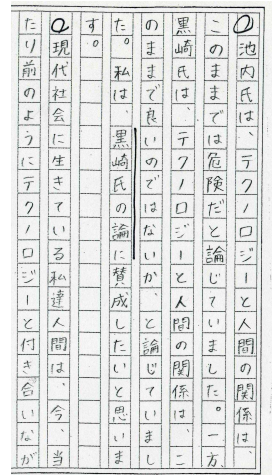 池内氏は、テクノロジーと人間の関係は、
このままでは危険だと論じていました。一方、
黒崎氏は、テクノロジーと人間の関係は、こ
のままで良いのではないか、と論じていまし
た。私は、黒崎氏の論に賛成したいと思いま
す。
現代社会に生きている私達人間は、今、当
たり前のようにテクノロジーと付き合いなが